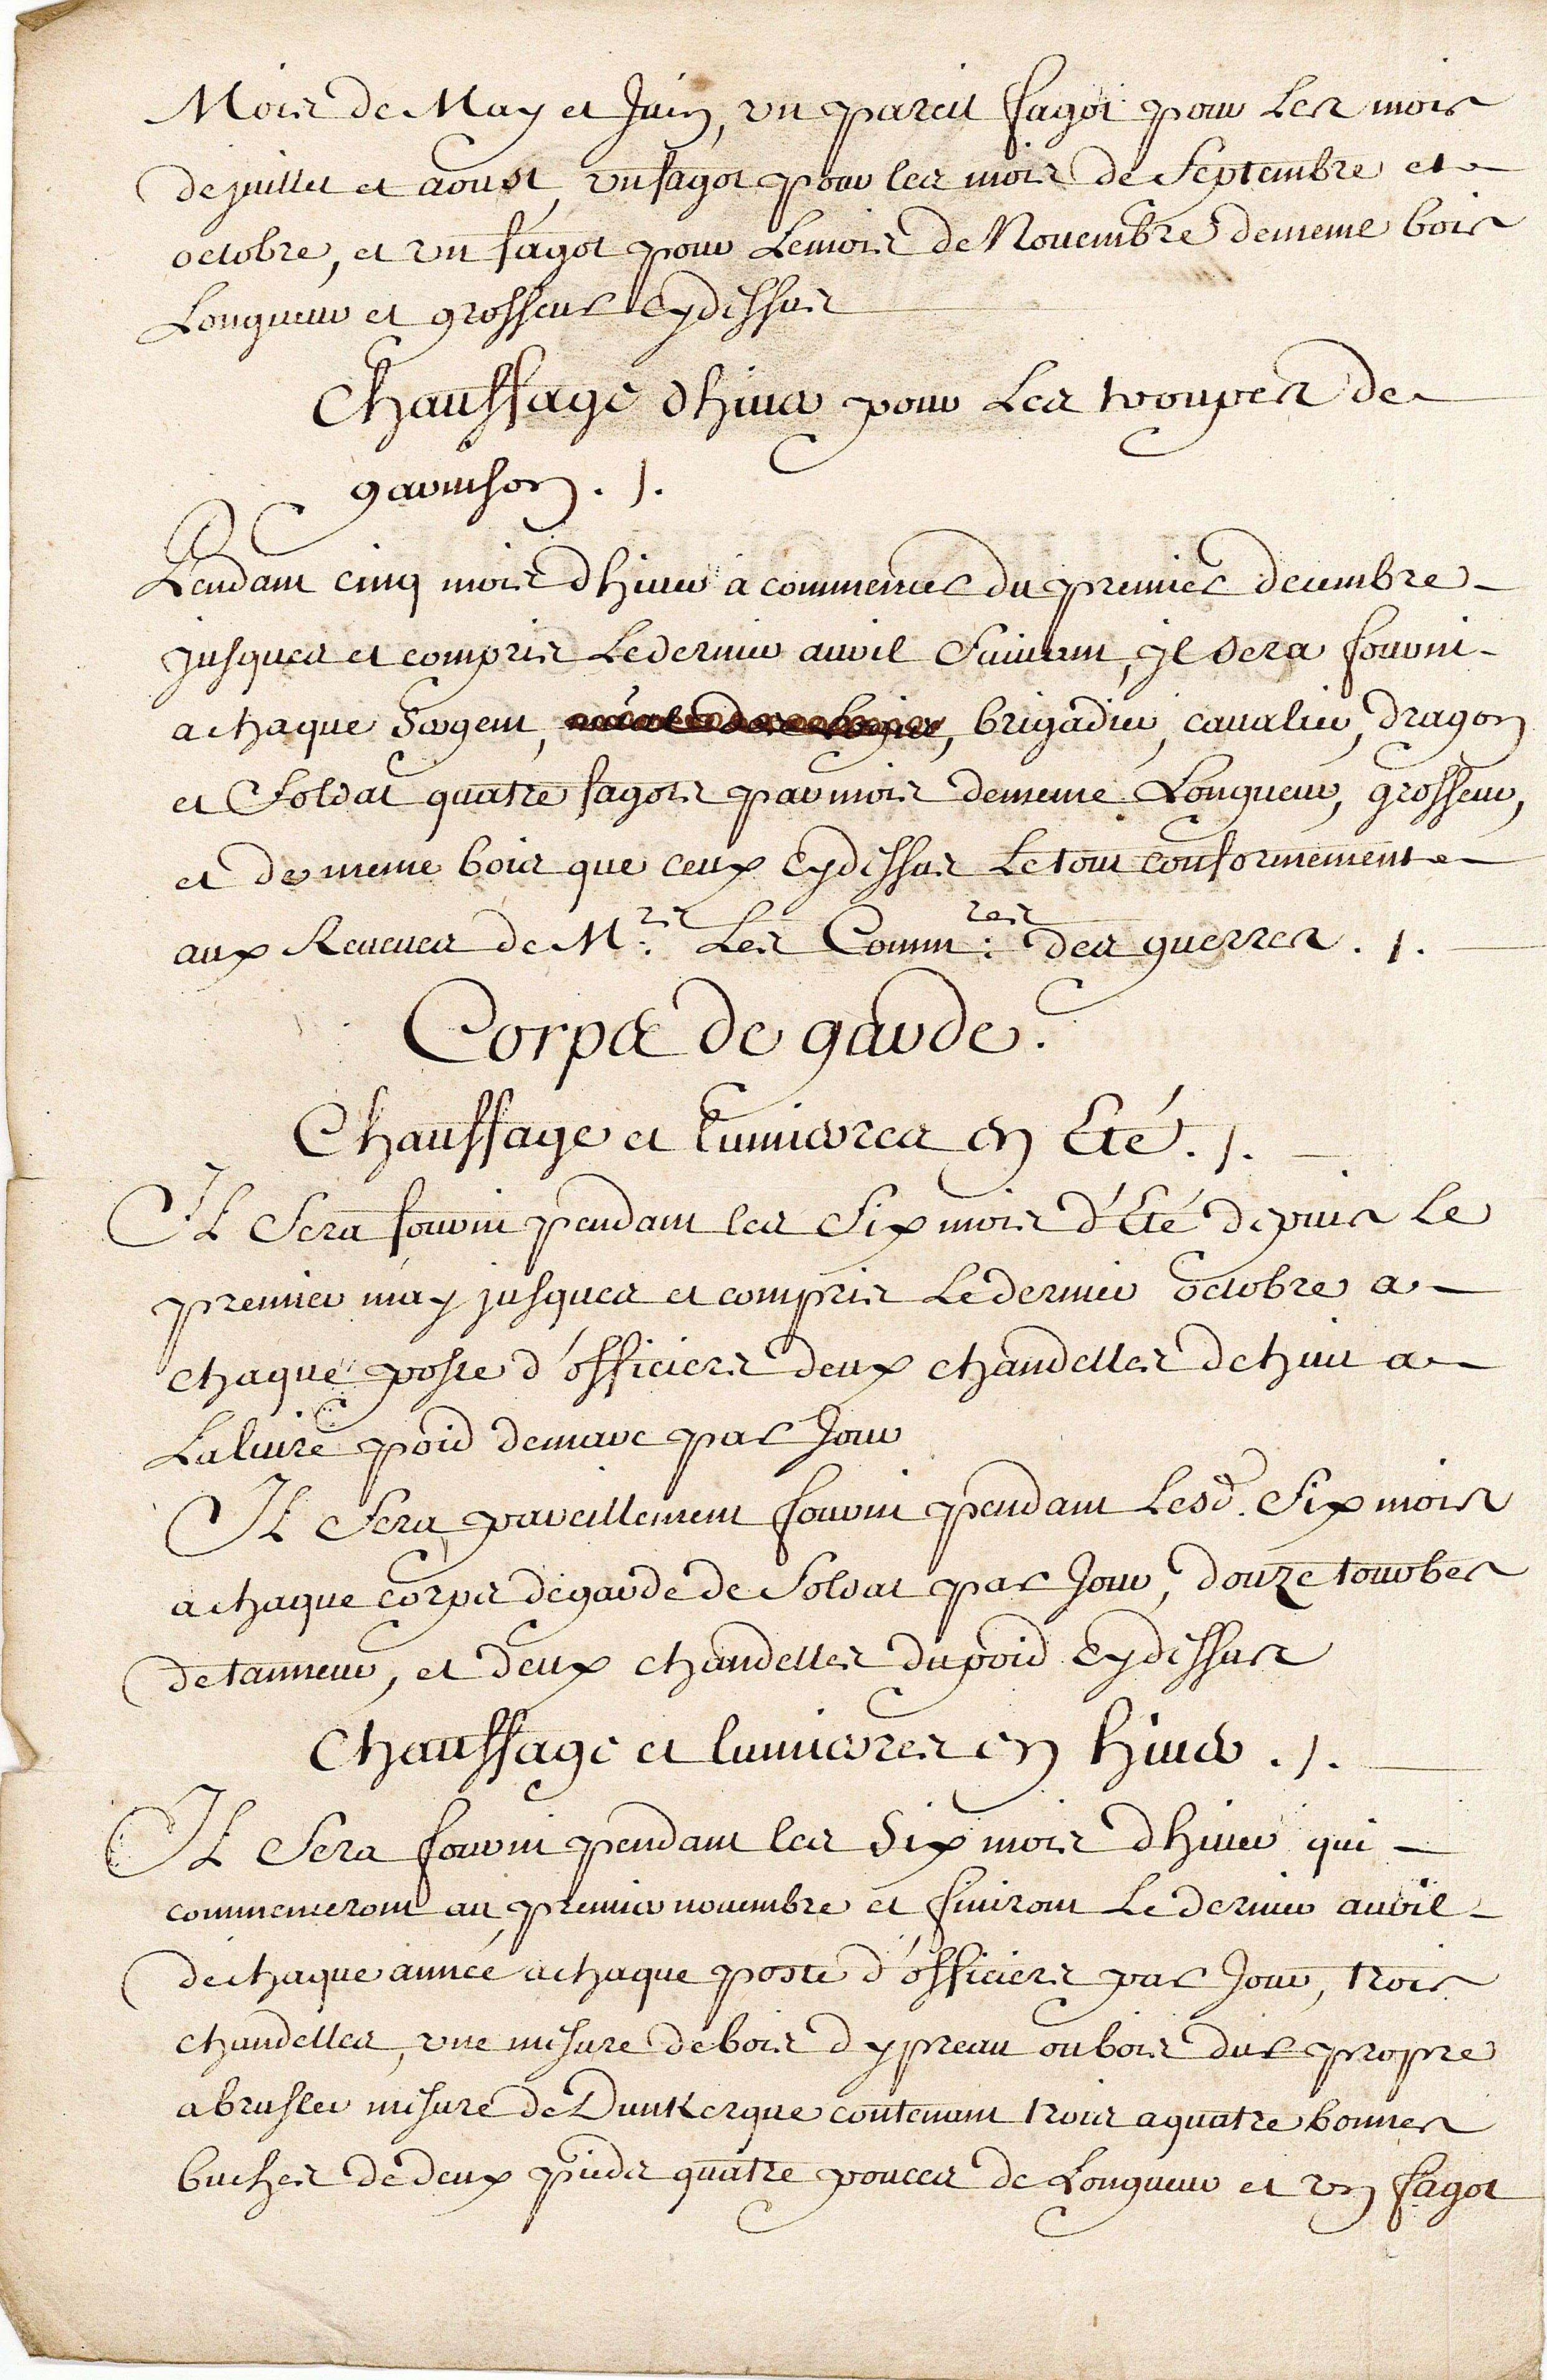 Mois de May et Juin, vn pareil fagot pour Les mois
de juillet et aoust, vn fagot pour les mois de Septembre et
octobre, et vn fagot pour Le mois de Nouembre de meme bois
Longueur et grosseur cy dessus
Chauffage dhiuer pour Les trouppes de
garnison . / .
Pendant cinq mois dhiuer a commencer du premier decembre
jusques et compris Le dernier auril Suiuant, jl sera fourni
a chaque Sergent, , brigadier, caualier, dragon
et Soldat quatre fagots par mois de meme Longueur, grosseur,
et de meme bois que ceux cy dessus Le tout conformement
aux Reueues de M.rs Les Comm.res des guerres . / .
Corps de garde.
Chauffage et lumieres en Eté . / .
Il Sera fourni pendant les Six mois d'Eté depuis Le
premier may jusques et compris Le dernier octobre a
chaque poste d'officiers deux chandelles de huit a
La liure poid de marc par Jour
Il Sera pareillement fourni pendant Lesd. Six mois
a chaque corps de garde de Soldat par Jour, douze tourbes
de tanneur, et deux chandelles du poid cy dessus
Chauffage et lumieres en hiuer . / .
Il Sera fourni pendant les Six mois dhiuer qui
commenceront au premier nouembre et finiront Le dernier auril
de chaque année a chaque poste d'officiers par Jour, trois
chandelles, vne mesure de bois d ypreau ou bois dur propre
a brusler mesure de Dunkerque contenant trois a quatre bonnes
buches de deux pieds quatre pouces de Longueur et vn fagot